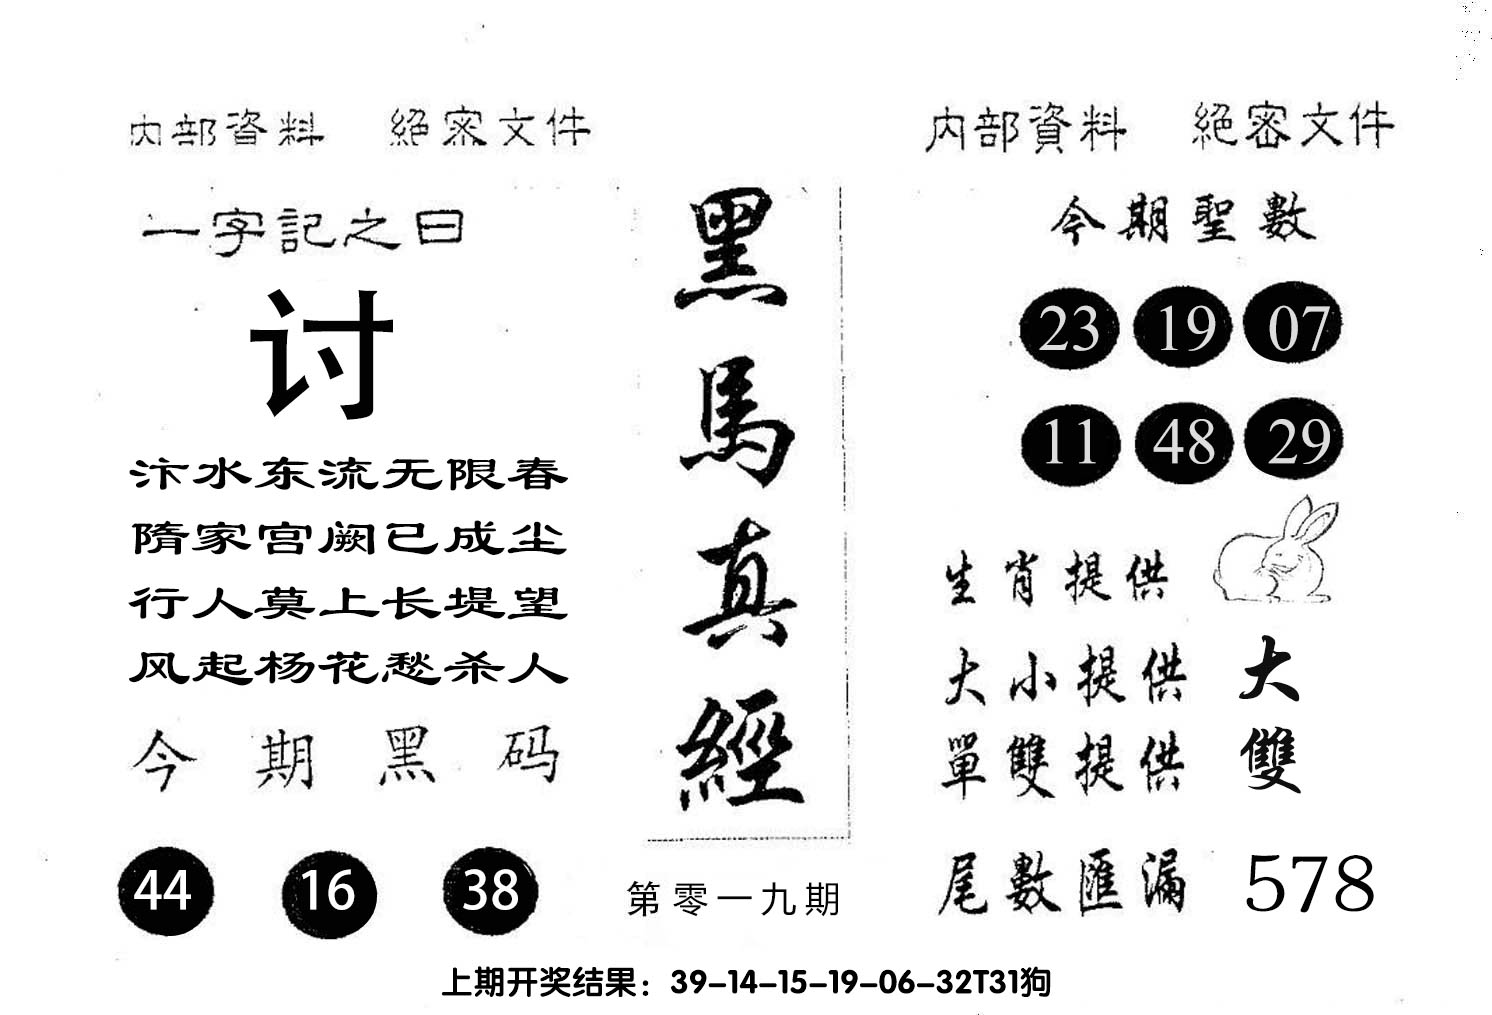 内部資料 絕密文件
一字記之曰
讨
汴水东流无限春
隋家宫阙已成尘
行人莫上长堤望
风起杨花愁杀人
今期黑码
44 16 38
黑馬真經
第零一九期
内部資料 絕密文件
今期聖數
23 19 07
11 48 29
生肖提供
大小提供 大
單雙提供 雙
尾數匯漏 578
上期开奖结果：39-14-15-19-06-32T31狗